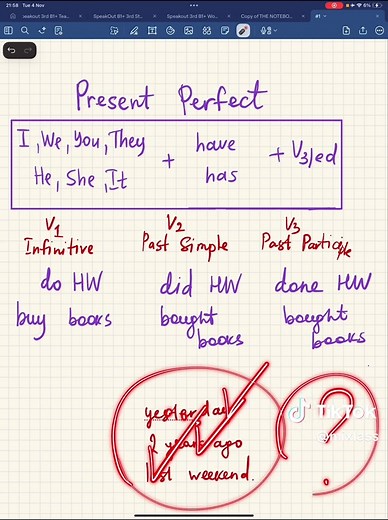 21:58 Tue 4 Nov
6%
Speakout 3rd B1+ Tea...
SpeakOut B1+ 3rd St...
Speakout 3rd B1+ Wo...
Copy of THE NOTEBO...
#1
Present Perfect
I, We, You, They
He, She, It
+
have
has
+ V3/ed
V1
Infinitive
V2
Past Simple
V3
Past Participle
do HW
did HW
done HW
buy books
bought books
bought books
yesterday
2 years ago
last weekend.
?
TikTok